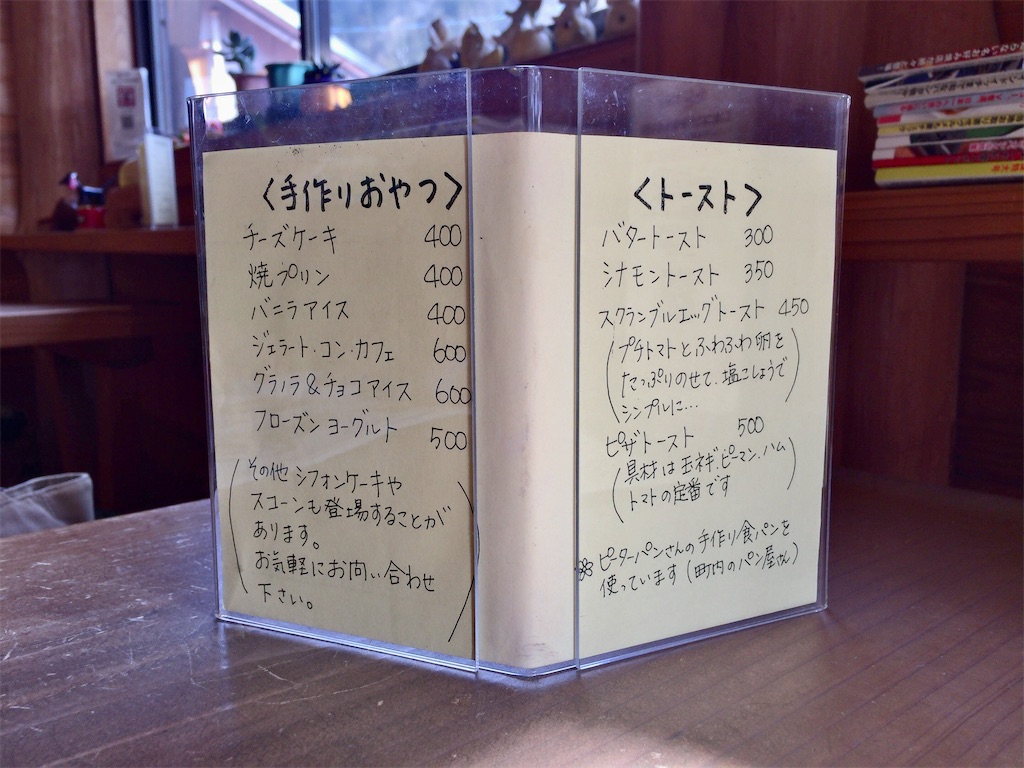 〈手作りおやつ〉
チーズケーキ 400
焼プリン 400
バニラアイス 400
ジェラート・コン・カフェ 600
グラノラ&チョコアイス 600
フローズンヨーグルト 500
(その他 シフォンケーキや
スコーンも登場することが
あります。
お気軽にお問い合わせ
下さい。)
〈トースト〉
バタートースト 300
シナモントースト 350
スクランブルエッグトースト 450
(プチトマトとふわふわ卵を
たっぷりのせて、塩こしょうで
シンプルに…)
ピザトースト 500
(具材は玉ネギ、ピーマン、ハム
トマトの定番です)
ピーターパンさんの手作り食パンを
使っています(町内のパン屋さん)